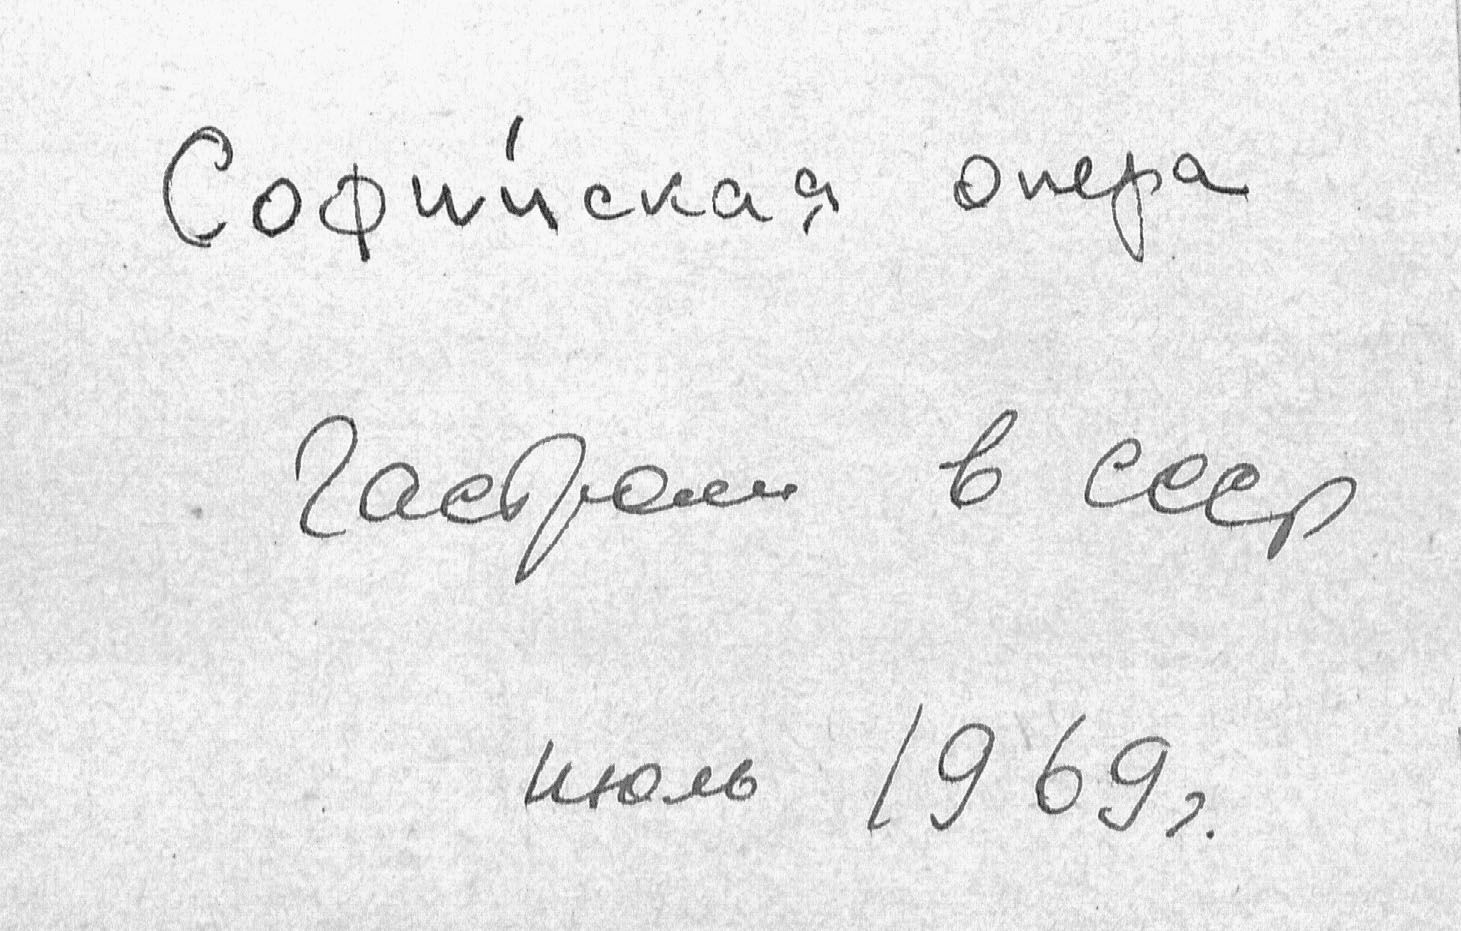 Софийская опера
Гастроли в СССР
июль 1969г.